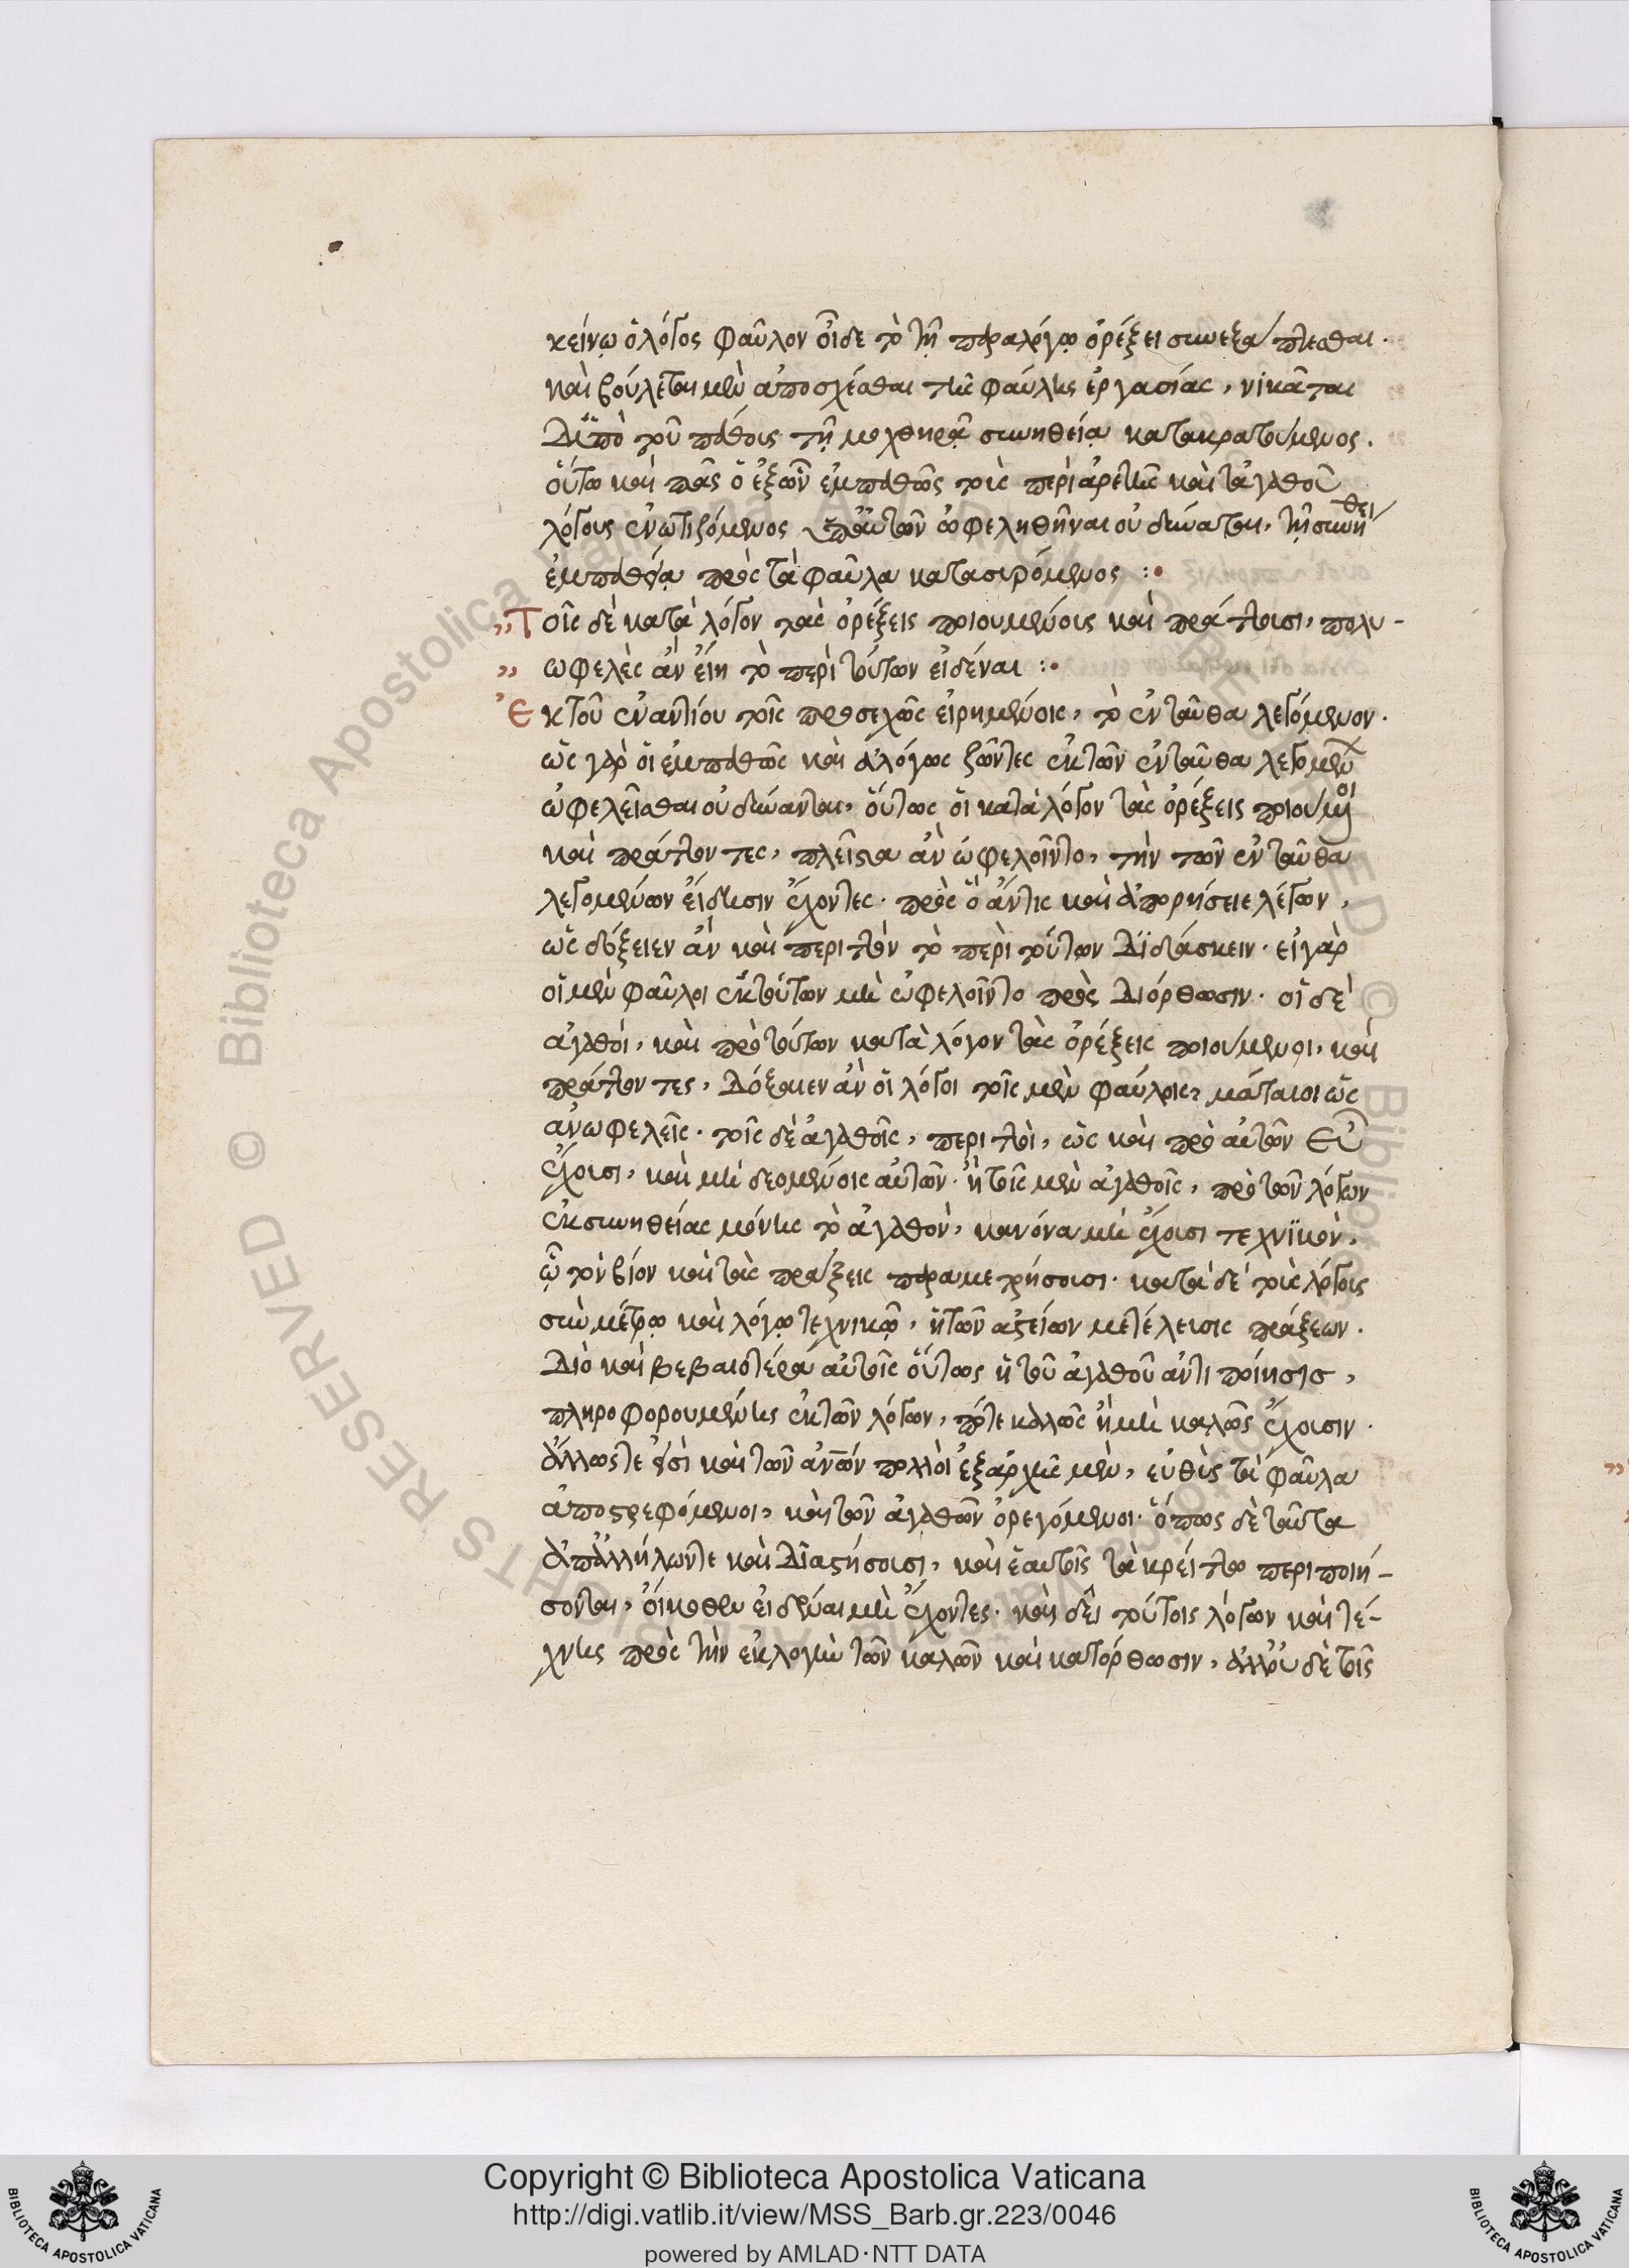 κείνῳ ὁ λόγος φαῦλον οἶδε τὸ τῇ παραλόγῳ ὀρέξει συνεξάπτεσθαι·
καὶ βούλεται μὲν ἀποσχέσθαι τῆς φαύλης ἐργασίας, νικᾶται
δὲ ὑπὸ τοῦ πάθους τῇ μοχθηρᾷ συνηθείᾳ κατακρατούμενος.
οὕτω καὶ πᾶς ὁ ἐξ ὧν ἐμπαθῶς τοὺς περὶ ἀρετῆς καὶ τἀγαθοῦ
λόγους ἐνωτιζόμενος ἐπ' αὐτῶν ὠφεληθῆναι οὐ δύναται, τῇ συνηθεί
ἐμπαθείᾳ πρὸς τὰ φαῦλα κατασυρόμενος :·
„ Τοῖς δὲ κατὰ λόγον τὰς ὀρέξεις ποιουμένοις καὶ πράττουσι, πολυ-
„ ωφελὲς ἂν εἴη τὸ περὶ τούτων εἰδέναι :·
Ἐκ τοῦ ἐναντίου τοῖς προσεχῶς εἰρημένοις, τὸ ἐνταῦθα λεγόμενον·
ὡς γὰρ οἱ ἐμπαθῶς καὶ ἀλόγως ζῶντες ἐκ τῶν ἐνταῦθα λεγομένων
ὠφελεῖσθαι οὐ δύνανται, οὕτως οἱ κατὰ λόγον τὰς ὀρέξεις ποιούμενοι
καὶ πράττοντες, πλεῖστα ἂν ὠφελοῖντο, τὴν τῶν ἐνταῦθα
λεγομένων εἴδησιν ἔχοντες· πρὸς ὃ ἄν τις καὶ ἀπορήσειε λέγων,
ὡς δόξειεν ἂν καὶ περιττὸν τὸ περὶ τούτων διδάσκειν· εἰ γὰρ
οἱ μὲν φαῦλοι ἐκ τούτων μὴ ὠφελοῖντο πρὸς διόρθωσιν· οἱ δὲ
ἀγαθοὶ, καὶ πρὸ τούτων κατὰ λόγον τὰς ὀρέξεις ποιούμενοι, καὶ
πράττοντες, δόξαιεν ἂν οἱ λόγοι τοῖς μὲν φαύλοις, μάταιοι ὡς
ἀνωφελεῖς· τοῖς δὲ ἀγαθοῖς, περιττοὶ, ὡς καὶ πρὸ αὐτῶν εὖ
ἔχουσι, καὶ μὴ δεομένοις αὐτῶν· ἢ τοῖς μὲν ἀγαθοῖς, πρὸ τῶν λόγων
ἐκ συνηθείας μόνης τὸ ἀγαθὸν, κανόνα μὴ ἔχουσι τεχνϊκὸν,
ᾧ τὸν βίον καὶ τὰς πράξεις παραμετρήσουσι· κατὰ δὲ τοὺς λόγους
σὺν μέτρῳ καὶ λόγῳ τεχνικῷ, ἡ τῶν ἀστείων μετέλευσις πράξεων.
Διὸ καὶ βεβαιοτέρα αὐτοῖς οὕτως ἡ τοῦ ἀγαθοῦ ἀντιποίησις,
πληροφορουμένης ἐκ τῶν λόγων, πότε καλῶς ἢ μὴ καλῶς ἔχουσιν.
ἄλλως τε εἰσὶ καὶ τῶν ἀνων πολλοὶ ἐξ ἀρχῆς μὲν, εὐθὺς τὰ φαῦλα
ἀποστρεφόμενοι, καὶ τῶν ἀγαθῶν ὀρεγόμενοι· ὅπως δὲ ταῦτα
ἀπ' ἀλλήλων τε καὶ διαστήσουσι, καὶ ἑαυτοῖς τὰ κρείττω περιποιή-
σονται, οἴκοθεν εἰδέναι μὴ ἔχοντες· καὶ δεῖ τούτοις λόγων καὶ τέ-
χνης πρὸς τὴν ἐκλογὴν τῶν καλῶν καὶ κατόρθωσιν, ἀλλ' οὐδὲ τοῖς
Copyright © Biblioteca Apostolica Vaticana
http://digi.vatlib.it/view/MSS_Barb.gr.223/0046
powered by AMLAD·NTT DATA